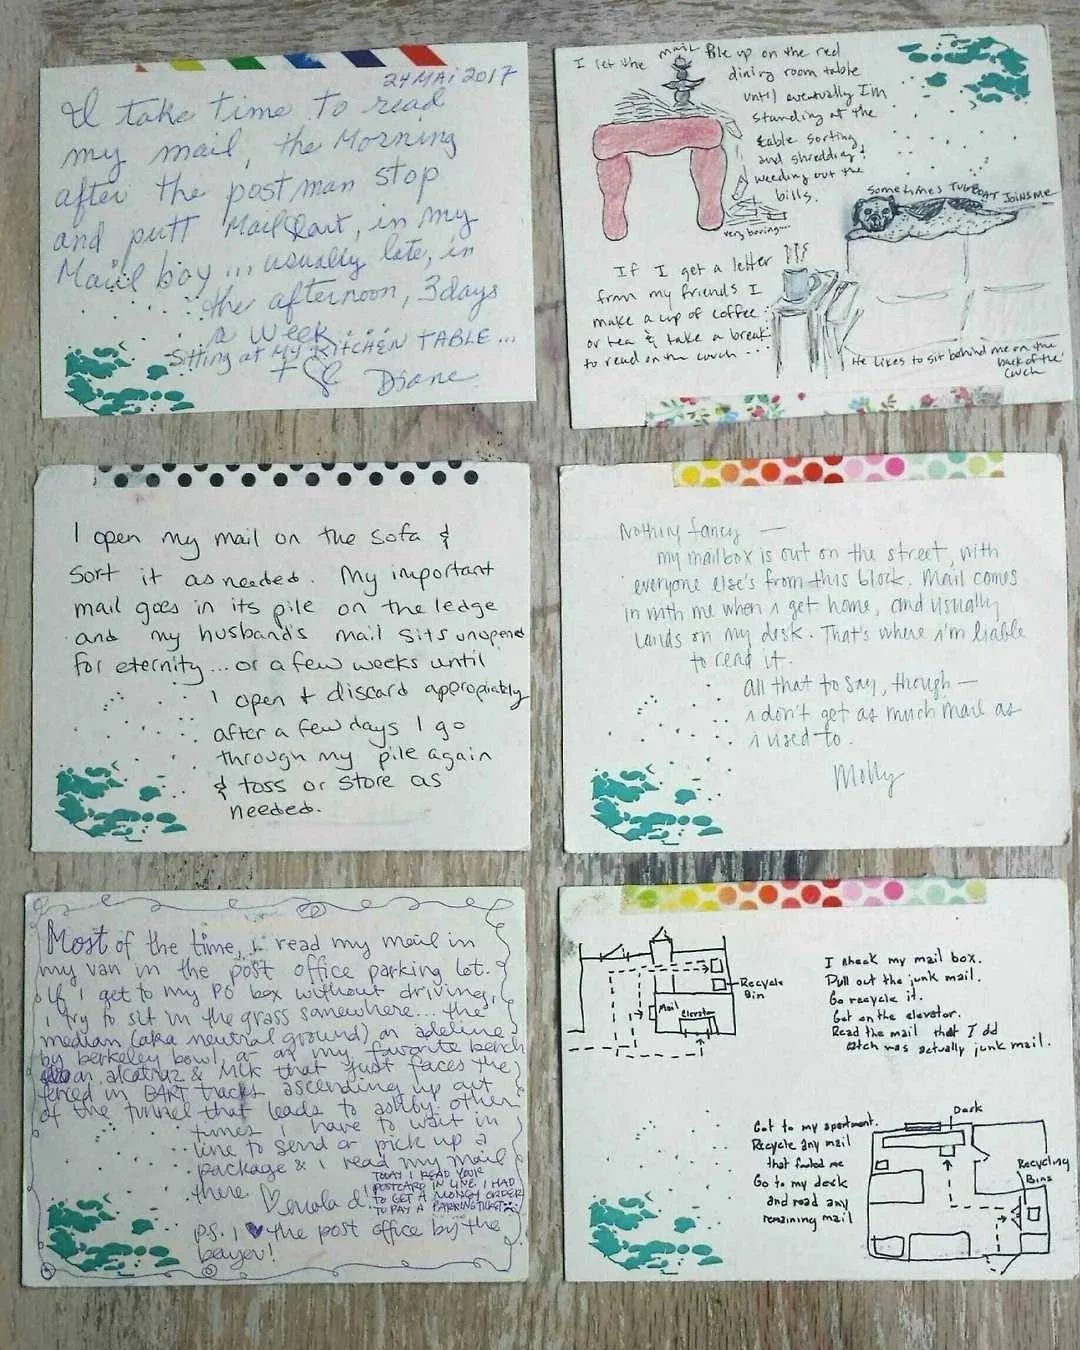 24 MAI 2017
I take time to read
my mail, the Morning
after the postman stop
and putt Mail Qart, in my
Mail boy... usually late, in
the afternoon, 3 days
a week....
Sitting at MY KITCHEN TABLE...
+ Diane
I let the mail pile up on the red
dining room table
until eventually I'm
standing at the
table sorting
and shredding &
weeding out the
bills.
very boring...
Sometimes TUGBOAT JOINS ME
If I get a letter
from my friends I
make a cup of coffee
or tea & take a break
to read on the couch...
He likes to sit behind me on the
back of the
couch
I open my mail on the sofa &
sort it as needed. My important
mail goes in its pile on the ledge
and my husband's mail sits unopened
for eternity... or a few weeks until
I open & discard appropiately
after a few days I go
through my pile again
& toss or store as
needed.
Nothing fancy —
my mailbox is out on the street, with
everyone else's from this block. Mail comes
in with me when I get home, and usually
lands on my desk. That's where I'm liable
to read it.
All that to say, though —
I don't get as much mail as
I used to.
Molly
Most of the time, I read my mail in
my van in the post office parking lot.
If I get to my PO box without driving,
I try to sit in the grass somewhere... the
median (aka neutral ground) on adeline
by berkeley bowl, or on my favorite bench
on alcatraz & MLK that just faces the
fenced in BART tracks ascending up out
of the tunnel that leads to ashby. Other
times I have to wait in
line to send or pick up a
package & I read my mail
there
enola d!
TODAY I READ YOUR
POSTCARD IN LINE. I HAD
TO GET A MONEY ORDER
TO PAY A PARKING TICKET
P.S. I ♥ the post office by the
bayou!
Recycle
Bin
Mail
Elevator
I check my mail box.
Pull out the junk mail.
Go recycle it.
Get on the elevator.
Read the mail that I did
catch was actually junk mail.
Get to my apartment.
Recycle any mail
that fooled me
Go to my desk
and read any
remaining mail
Desk
Recycling
Bins